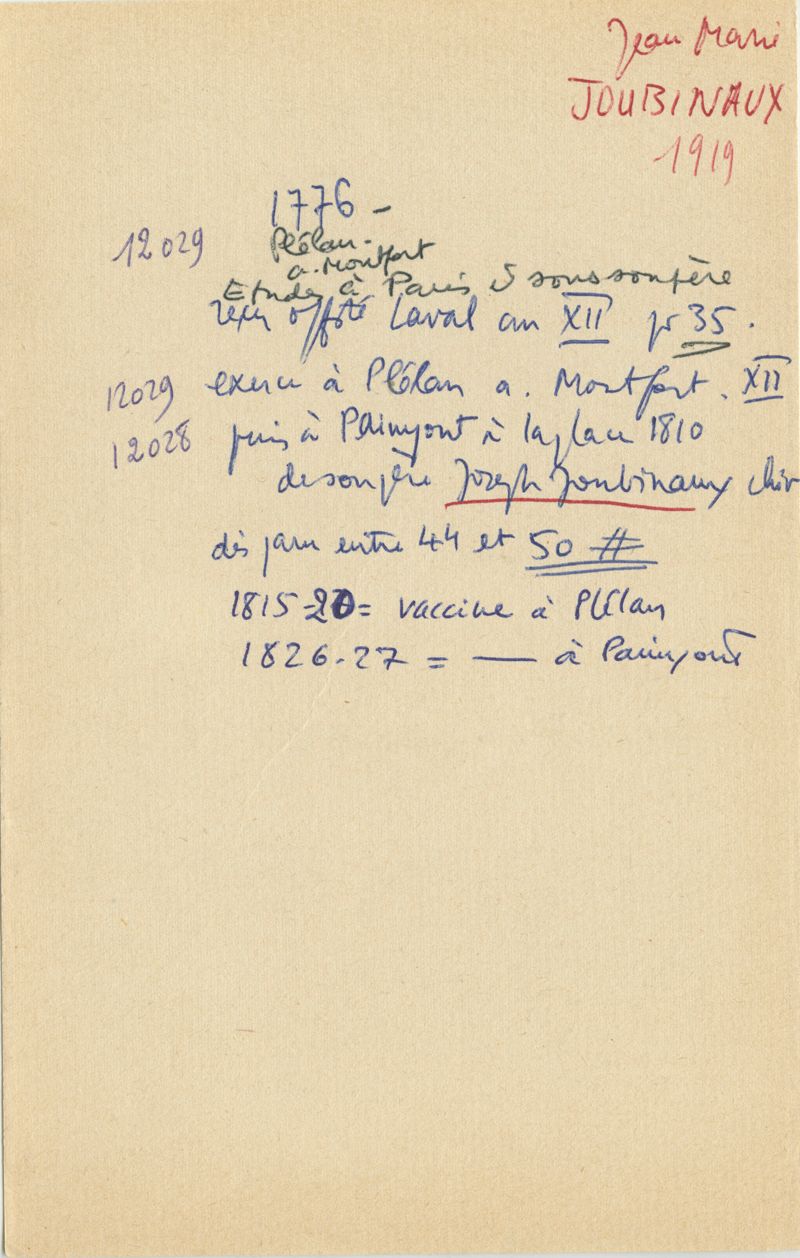 Jean Marie
JOUBINAUX
1919
1776 -
12029
Plélan.
a. Montfort
Etudes à Paris & sous son père
reçu off Laval an XII pr 35.
12029 exerce à Plélan a. Montfort. XII
12028 puis à Paimpont à la place 1810
de son père Joseph Joubinaux chir
dès janv entre 44 et 50 #
1815-20 = vaccine à Plélan
1826-27 = — à Paimpont